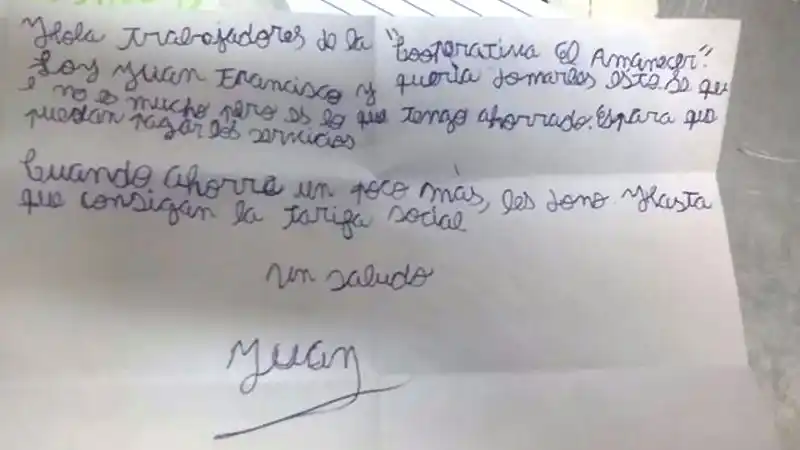 Hola Trabajadores de la "Cooperativa El Amanecer".
Soy Juan Francisco y quería donarles esto. Se qu
e no es mucho pero es lo que tengo ahorrado. Es para que
puedan pagar los servicios
Cuando ahorre un poco más, les dono Hasta
que consigan la tarifa social
Un saludo
Juan